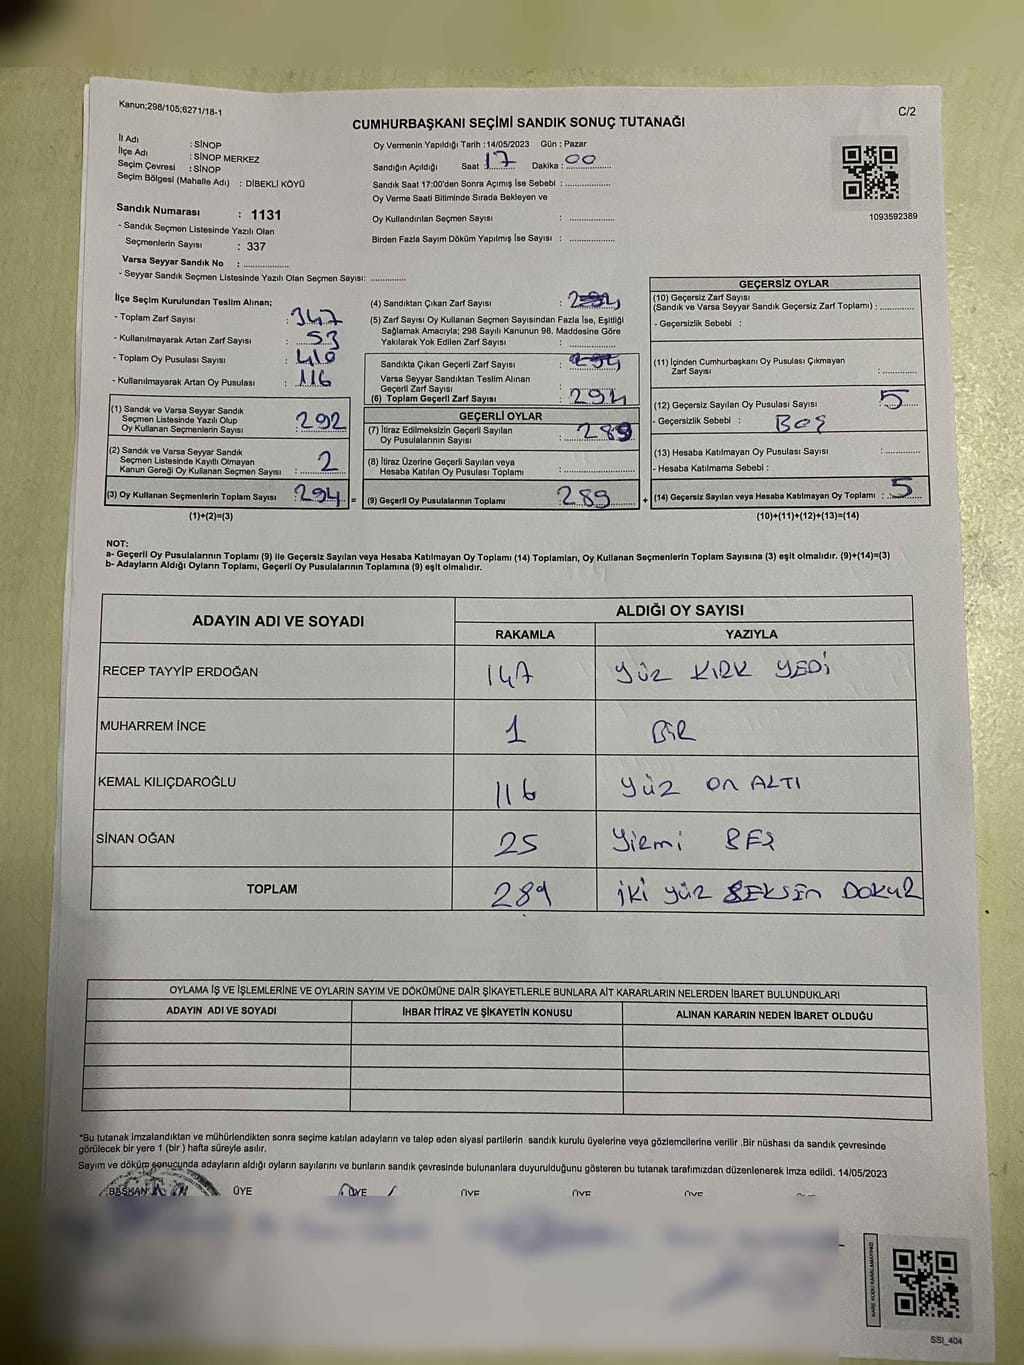 Kanun;298/105;6271/18-1
C/2
CUMHURBAŞKANI SEÇİMİ SANDIK SONUÇ TUTANAĞI
İl Adı : SİNOP
İlçe Adı : SİNOP MERKEZ
Seçim Çevresi : SİNOP
Seçim Bölgesi (Mahalle Adı) : DİBEKLİ KÖYÜ
Oy Vermenin Yapıldığı Tarih :14/05/2023 Gün : Pazar
Sandığın Açıldığı Saat 17 Dakika : 00
Sandık Saat 17:00'den Sonra Açımış İse Sebebi :
Oy Verme Saati Bitiminde Sırada Bekleyen ve
Oy Kullandırılan Seçmen Sayısı :
Birden Fazla Sayım Döküm Yapılmış İse Sayısı :
1093592389
Sandık Numarası : 1131
- Sandık Seçmen Listesinde Yazılı Olan
Seçmenlerin Sayısı : 337
Varsa Seyyar Sandık No :
- Seyyar Sandık Seçmen Listesinde Yazılı Olan Seçmen Sayısı:
İlçe Seçim Kurulundan Teslim Alınan;
- Toplam Zarf Sayısı : 347
- Kullanılmayarak Artan Zarf Sayısı : 53
- Toplam Oy Pusulası Sayısı : 410
- Kullanılmayarak Artan Oy Pusulası : 116
(1) Sandık ve Varsa Seyyar Sandık
Seçmen Listesinde Yazılı Olup
Oy Kullanan Seçmenlerin Sayısı : 292
(2) Sandık ve Varsa Seyyar Sandık
Seçmen Listesinde Kayıtlı Olmayan
Kanun Gereği Oy Kullanan Seçmen Sayısı : 2
(3) Oy Kullanan Seçmenlerin Toplam Sayısı : 294 =
(1)+(2)=(3)
(4) Sandıktan Çıkan Zarf Sayısı :
(5) Zarf Sayısı Oy Kullanan Seçmen Sayısından Fazla İse, Eşitliği
Sağlamak Amacıyla; 298 Sayılı Kanunun 98. Maddesine Göre
Yakılarak Yok Edilen Zarf Sayısı :
Sandıkta Çıkan Geçerli Zarf Sayısı :
Varsa Seyyar Sandıktan Teslim Alınan
Geçerli Zarf Sayısı :
(6) Toplam Geçerli Zarf Sayısı : 294
GEÇERLİ OYLAR
(7) İtiraz Edilmeksizin Geçerli Sayılan
Oy Pusulalarının Sayısı : 289
(8) İtiraz Üzerine Geçerli Sayılan veya
Hesaba Katılan Oy Pusulası Toplamı :
(9) Geçerli Oy Pusulalarının Toplamı : 289 +
GEÇERSİZ OYLAR
(10) Geçersiz Zarf Sayısı
(Sandık ve Varsa Seyyar Sandık Geçersiz Zarf Toplamı) :
- Geçersizlik Sebebi :
(11) İçinden Cumhurbaşkanı Oy Pusulası Çıkmayan
Zarf Sayısı :
(12) Geçersiz Sayılan Oy Pusulası Sayısı : 5
- Geçersizlik Sebebi : BOŞ
(13) Hesaba Katılmayan Oy Pusulası Sayısı :
- Hesaba Katılmama Sebebi :
(14) Geçersiz Sayılan veya Hesaba Katılmayan Oy Toplamı : 5
(10)+(11)+(12)+(13)=(14)
NOT:
a- Geçerli Oy Pusulalarının Toplamı (9) ile Geçersiz Sayılan veya Hesaba Katılmayan Oy Toplamı (14) Toplamları, Oy Kullanan Seçmenlerin Toplam Sayısına (3) eşit olmalıdır. (9)+(14)=(3)
b- Adayların Aldığı Oyların Toplamı, Geçerli Oy Pusulalarının Toplamına (9) eşit olmalıdır.
ADAYIN ADI VE SOYADI
ALDIĞI OY SAYISI
RAKAMLA YAZIYLA
RECEP TAYYİP ERDOĞAN 147 Yüz KIRK YEDİ
MUHARREM İNCE 1 BİR
KEMAL KILIÇDAROĞLU 116 Yüz On ALTI
SİNAN OĞAN 25 Yirmi BEŞ
TOPLAM 289 İki yüz SEKSEn DOKUZ
OYLAMA İŞ VE İŞLEMLERİNE VE OYLARIN SAYIM VE DÖKÜMÜNE DAİR ŞİKAYETLERLE BUNLARA AİT KARARLARIN NELERDEN İBARET BULUNDUKLARI
ADAYIN ADI VE SOYADI İHBAR İTİRAZ VE ŞİKAYETİN KONUSU ALINAN KARARIN NEDEN İBARET OLDUĞU
*Bu tutanak imzalandıktan ve mühürlendikten sonra seçime katılan adayların ve talep eden siyasi partilerin sandık kurulu üyelerine veya gözlemcilerine verilir .Bir nüshası da sandık çevresinde
görülecek bir yere 1 (bir ) hafta süreyle asılır.
Sayım ve döküm sonucunda adayların aldığı oyların sayılarını ve bunların sandık çevresinde bulunanlara duyurulduğunu gösteren bu tutanak tarafımızdan düzenlenerek imza edildi. 14/05/2023
BAŞKAN ÜYE ÜYE ÜYE ÜYE ÜYE
KARE KODU KARALAMAYINIZ
SSI_404